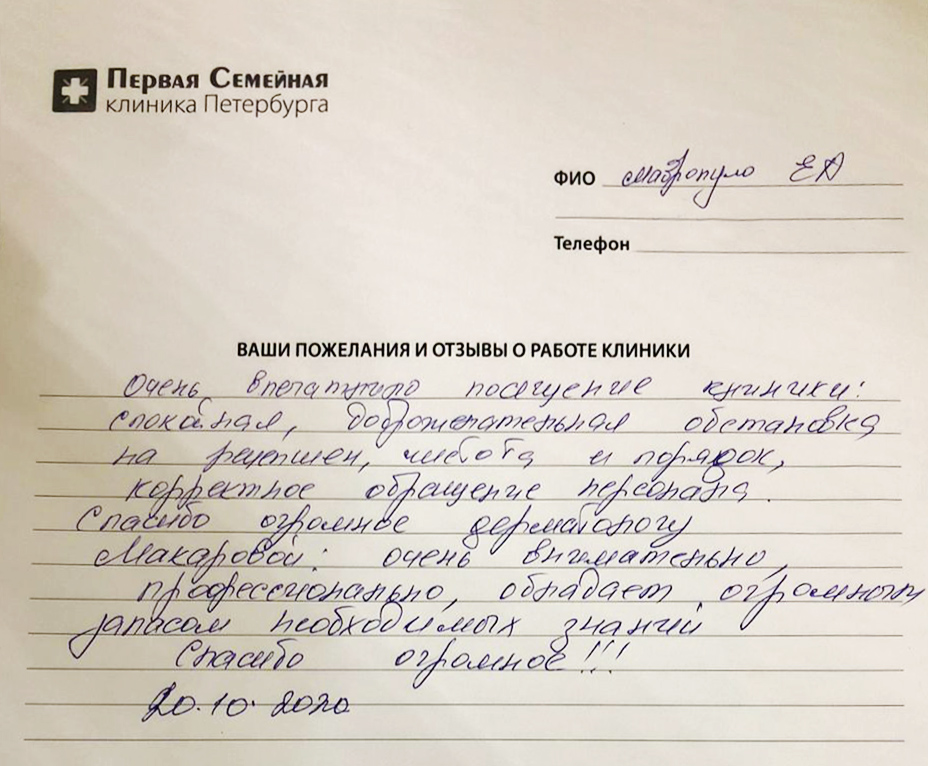 Первая Семейная
клиника Петербурга
ФИО Мавропуло ЕА
Телефон
ВАШИ ПОЖЕЛАНИЯ И ОТЗЫВЫ О РАБОТЕ КЛИНИКИ
Очень впечатлило посещение клиники:
спокойная, доброжелательная обстановка
на рецепшен, чистота и порядок,
корректное обращение персонала.
Спасибо огромное дерматологу
Макаровой: очень внимательно,
профессионально, обладает огромным
запасом необходимых знаний
Спасибо огромное!!!
20.10.2020